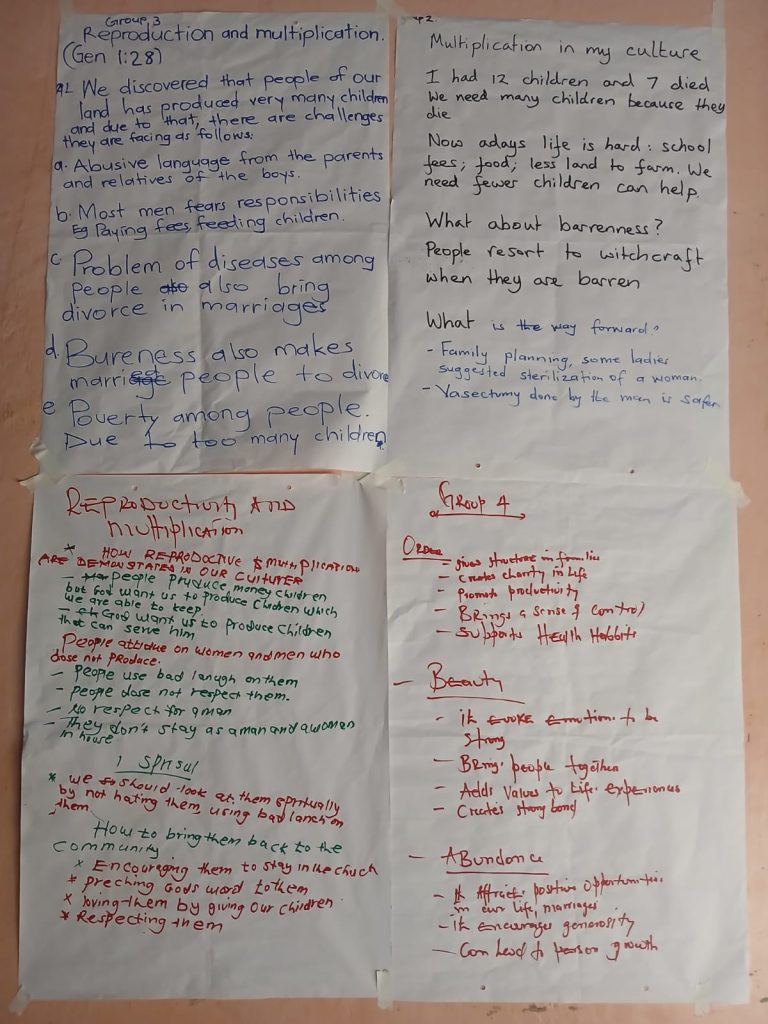 Group 3
Reproduction and multiplication.
(Gen 1:28)
We discovered that people of our
land has produced very many children
and due to that, there are challenges
they are facing as follows:
a. Abusive language from the parents
and relatives of the boys.
b. Most men fears responsibilities
Eg Paying fees, feeding children.
c. Problem of diseases among
people also bring
divorce in marriages
d. Bureness also makes
people to divorce
e Poverty among people.
Due to too many children.
Multiplication in my culture
I had 12 children and 7 died
We need many children because they
die
Now adays life is hard: school
fees; food; less land to farm. We
need fewer children can help.
What about barrenness?
People resort to witchcraft
when they are barren
What is the way forward?
- Family planning, some ladies
suggested sterilization of a woman.
- Vasectumy done by the man is safer
REPRODUCTIVITY AND
multiplication
* HOW REPRODUCTIVE & multiplication
ARE DEMONSTATED IN OUR CULTURER
- People produce money children
but God want us to produce Children which
we are able to keep.
- God want us to produce children
that can serve him
People attidue on women and men who
dose not produce.
- People use bad lanugh on them
- people dose not respect them.
- No respect for a man
- They don't stay as a man and a woman
in house
* we should look at them spritually
by not hating them, using bad lanch on
them
How to bring them back to the
community
* Encouraging them to stay in the chuch
* preching Gods word to them
* loving them by giving our children
* Respecting them
Group 4
Order
- gives structure in families
- creates charity in Life
- Promote productivity
- Brings a sense of control
- Supports Health Habbits
- Beauty
- it evoke emotion to be
strong
- Bring people together
- Adds values to life experiences
- Creates strong bond
- Abundance
- It Attract positive opportunities
in our life, marriages
- it Encourages generosity
- Can lead to person growth